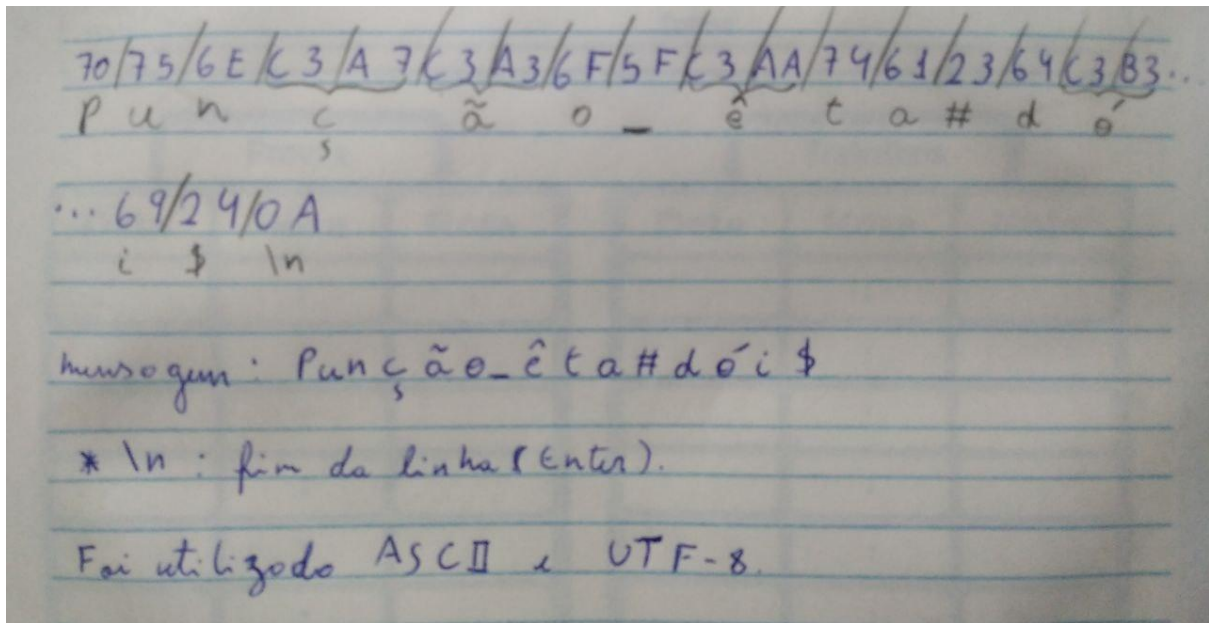 70/75/6E/C3/A7/C3/A3/6F/5F/C3/AA/74/61/23/64/C3/B3...
P u n ç ã o _ ê t a # d ó
...69/24/0A
i $ \n
mensagem: Punção_êta#dói$
* \n : fim da linha (Enter).
Foi utilizado ASCII e UTF-8.